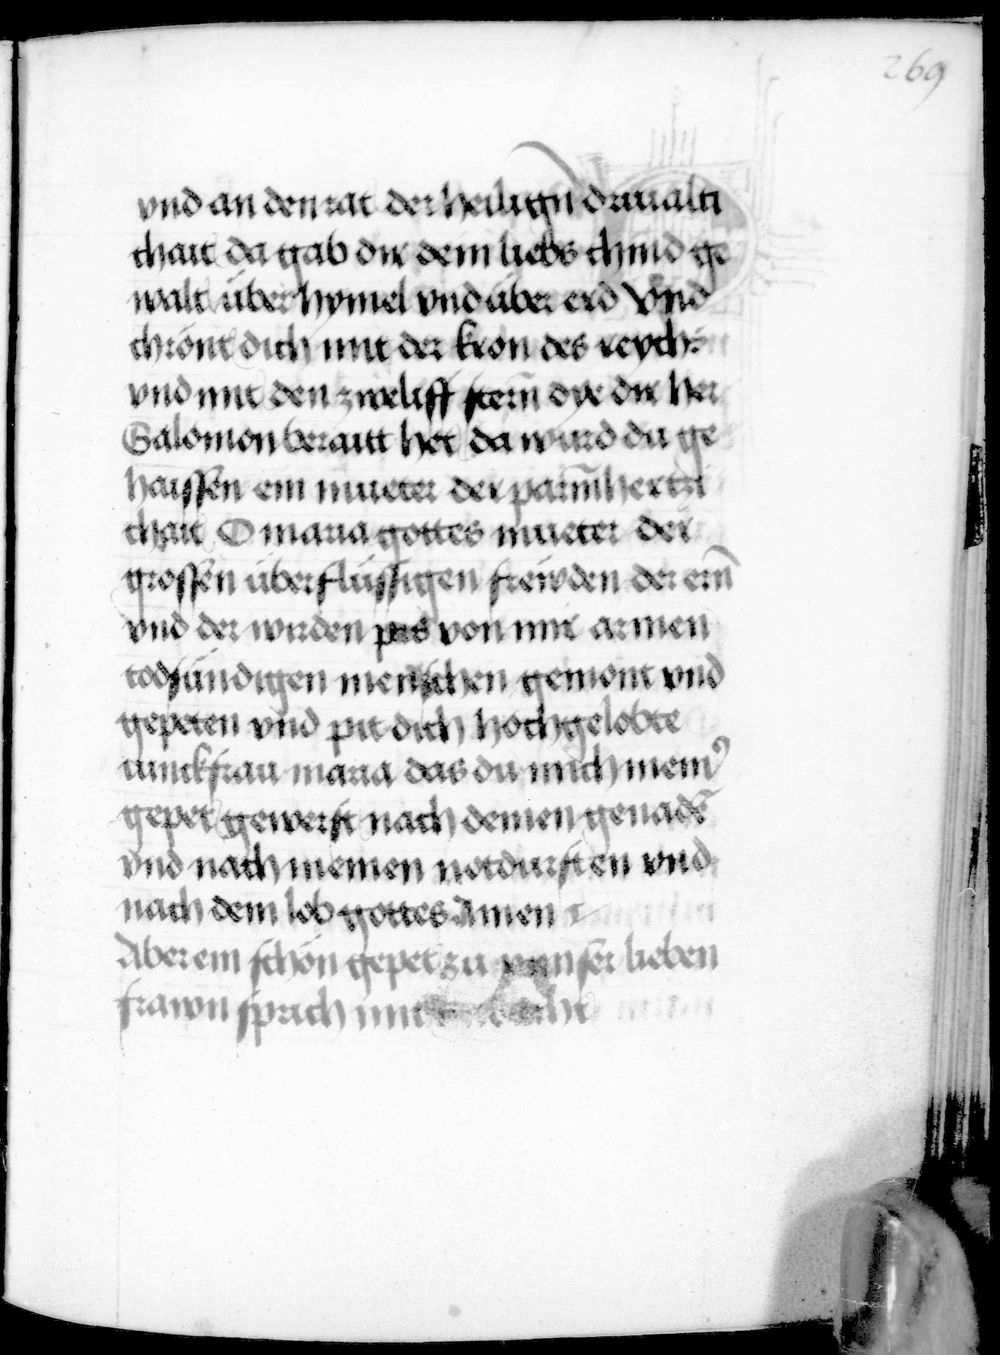 269
vnd an den rat der heiligñ driualti
chait da gab dir dein liebs chind ge
walt über hymel vnd über erd Vnd
chrönt dich mit der kron des reychs
vnd mit den zweliff sterñ dye dir her
Salomon beraitt het da wurd du ge
haissen ein mueter der parm̄hertzi
chait O maria gottes mueter der
grossen überflüssigen frewden der ern̄
vnd der wirden pis von mir armen
todsündigen menschen gemont vnd
gepeten vnd pit dich hochgelobte
iunckfrau maria das du mich meinꝰ
gepet gewerst nach deinen genadē
vnd nach meinen notdurften vnd
nach dem lob gottes Amen
Aber ein schön gepet zu vnser lieben
frawn sprich mit